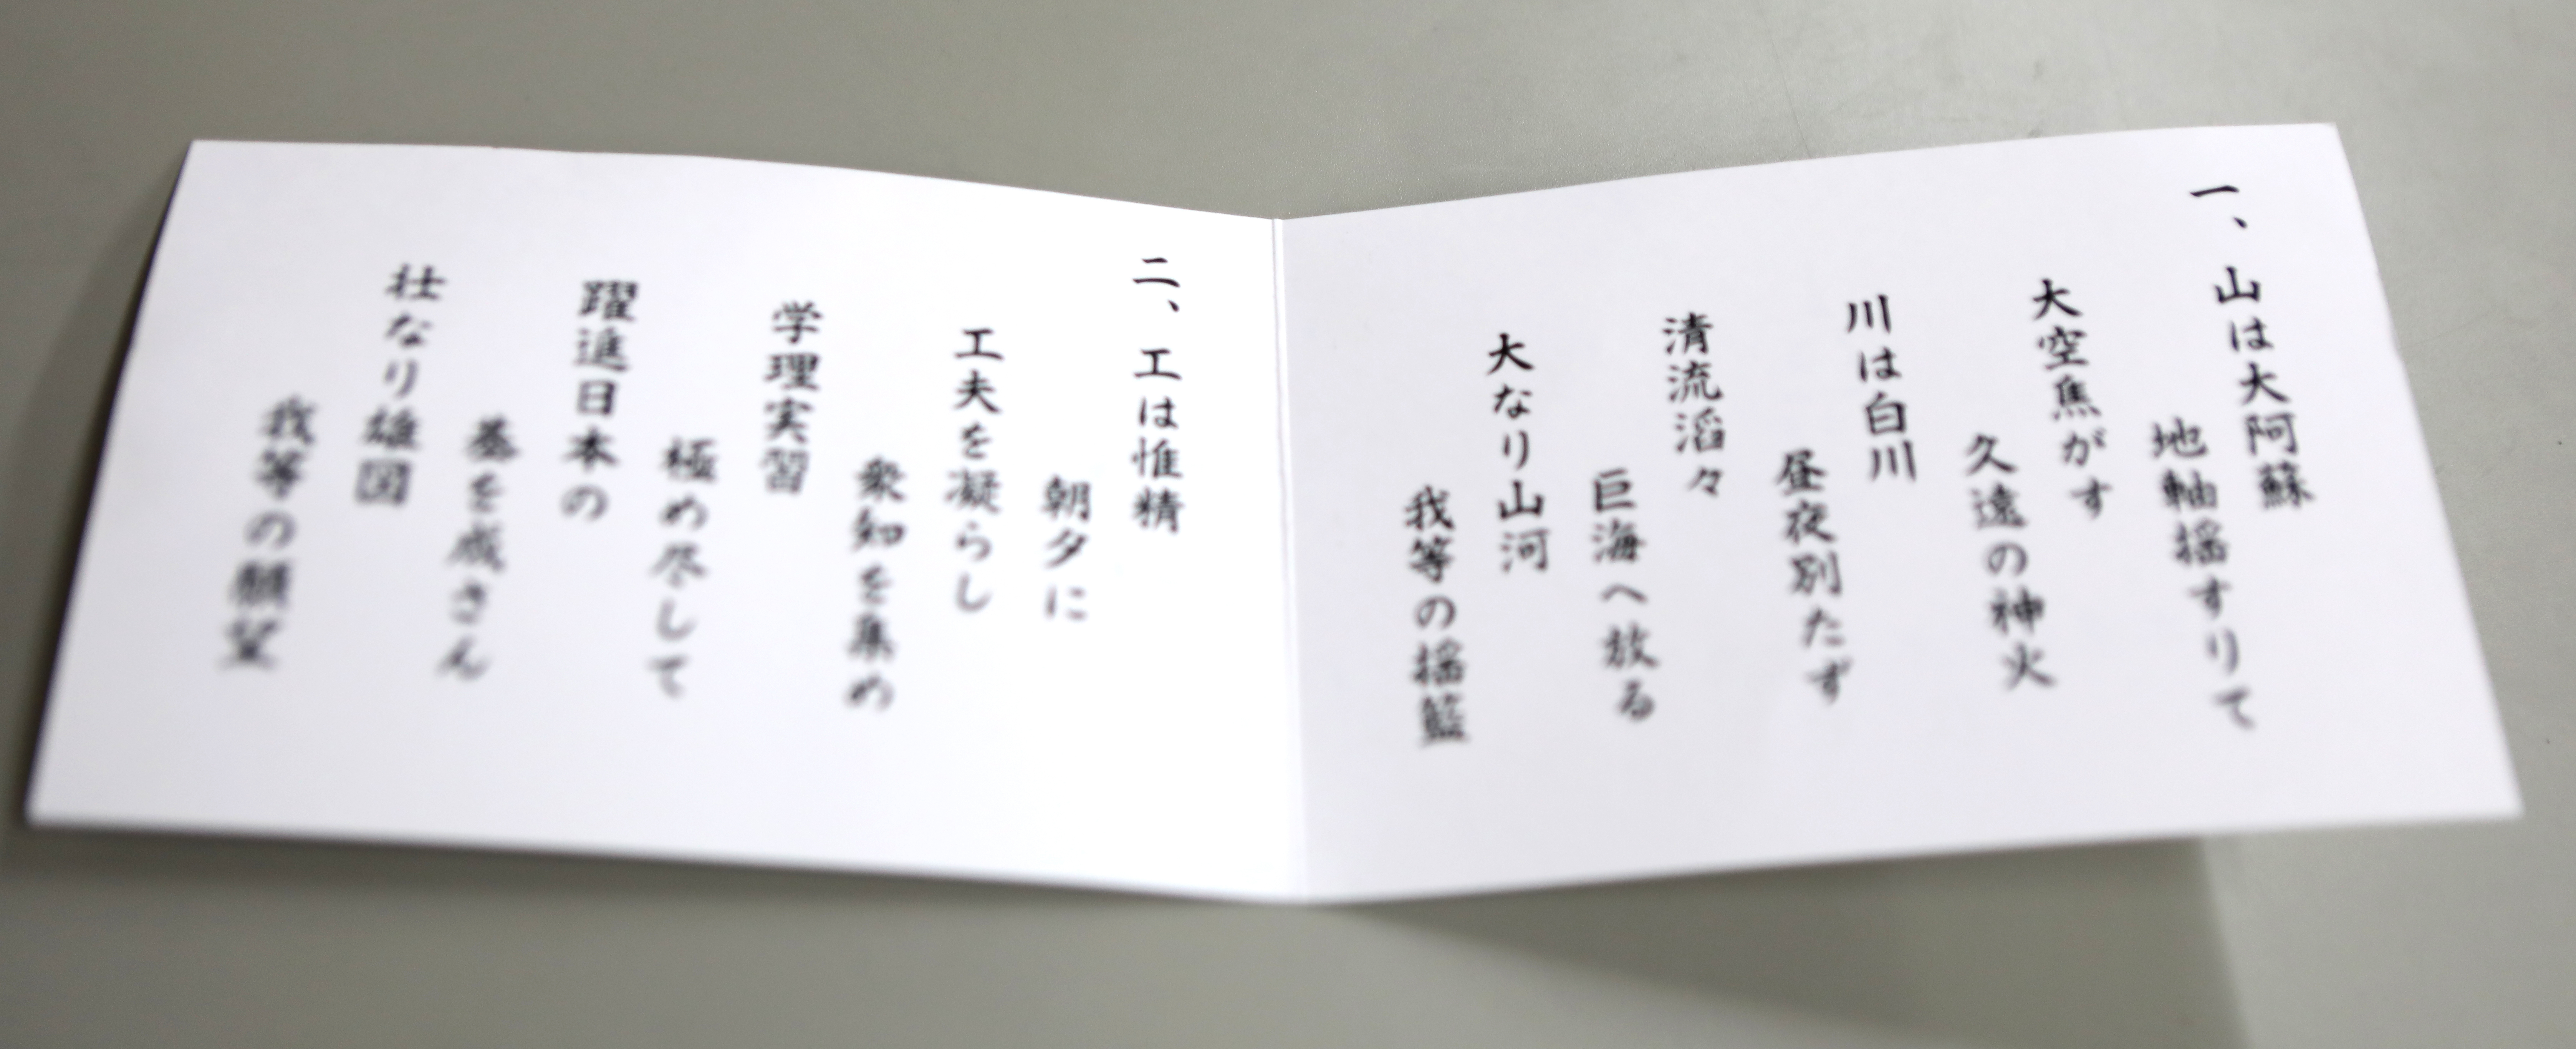 一、山は大阿蘇
地軸揺すりて
大空焦がす
久遠の神火
川は白川
昼夜別たず
清流滔々
巨海へ放る
大なり山河
我等の揺籃
二、工は惟精
朝夕に
工夫を凝らし
衆知を集め
学理実習
極め尽して
躍進日本の
基を成さん
壮なり雄図
我等の願望